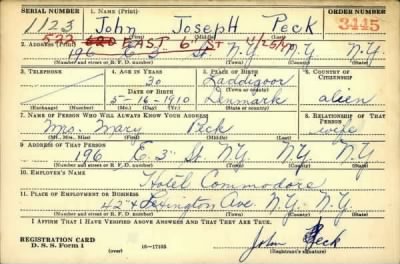 SERIAL NUMBER 1. NAME (Print) ORDER NUMBER
1123 John Joseph Peck 3445
(First) (Middle) (Last)
533 620 EAST 6 ST N.Y. 4/25/40
2. ADDRESS (Print)
196 E. 3 St. N.Y. N.Y.
(Number and street or R. F. D. number) (Town) (County) (State)
3. TELEPHONE 4. AGE IN YEARS 5. PLACE OF BIRTH 6. COUNTRY OF CITIZENSHIP
30
DATE OF BIRTH
5-16-1910 Denmark alien
(Exchange) (Number) (Mo.) (Day) (Yr.) (State or country)
7. NAME OF PERSON WHO WILL ALWAYS KNOW YOUR ADDRESS 8. RELATIONSHIP OF THAT PERSON
Mrs. Mary Peck wife
(Mr., Mrs., Miss) (First) (Middle) (Last)
9. ADDRESS OF THAT PERSON
196 E. 3 St. N.Y. N.Y.
(Number and street or R. F. D. number) (Town) (County) (State)
10. EMPLOYER'S NAME
Hotel Commodore
11. PLACE OF EMPLOYMENT OR BUSINESS
42 & Lexington Ave. N.Y. N.Y.
(Number and street or R. F. D. number) (Town) (County) (State)
I AFFIRM THAT I HAVE VERIFIED ABOVE ANSWERS AND THAT THEY ARE TRUE.
REGISTRATION CARD
D. S. S. Form 1 (over) 16-17105 John Peck
(Registrant's signature)